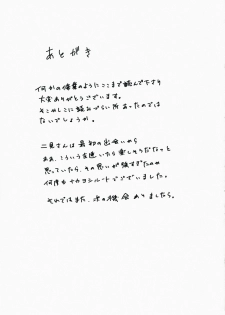 あとがき
何かの偶然のようにここまで読んで下さり
大変ありがとうございます。
そこかしこに読みづらい所あったのでは
ないでしょうか。
二見さんは最初の出会いから
ああ、こういう友達いたら楽しそうだなっと
思っていたら、その思いが強すぎたのか
何度もナカヨシルートでございました。
それではまた、次の機会ありましたら。